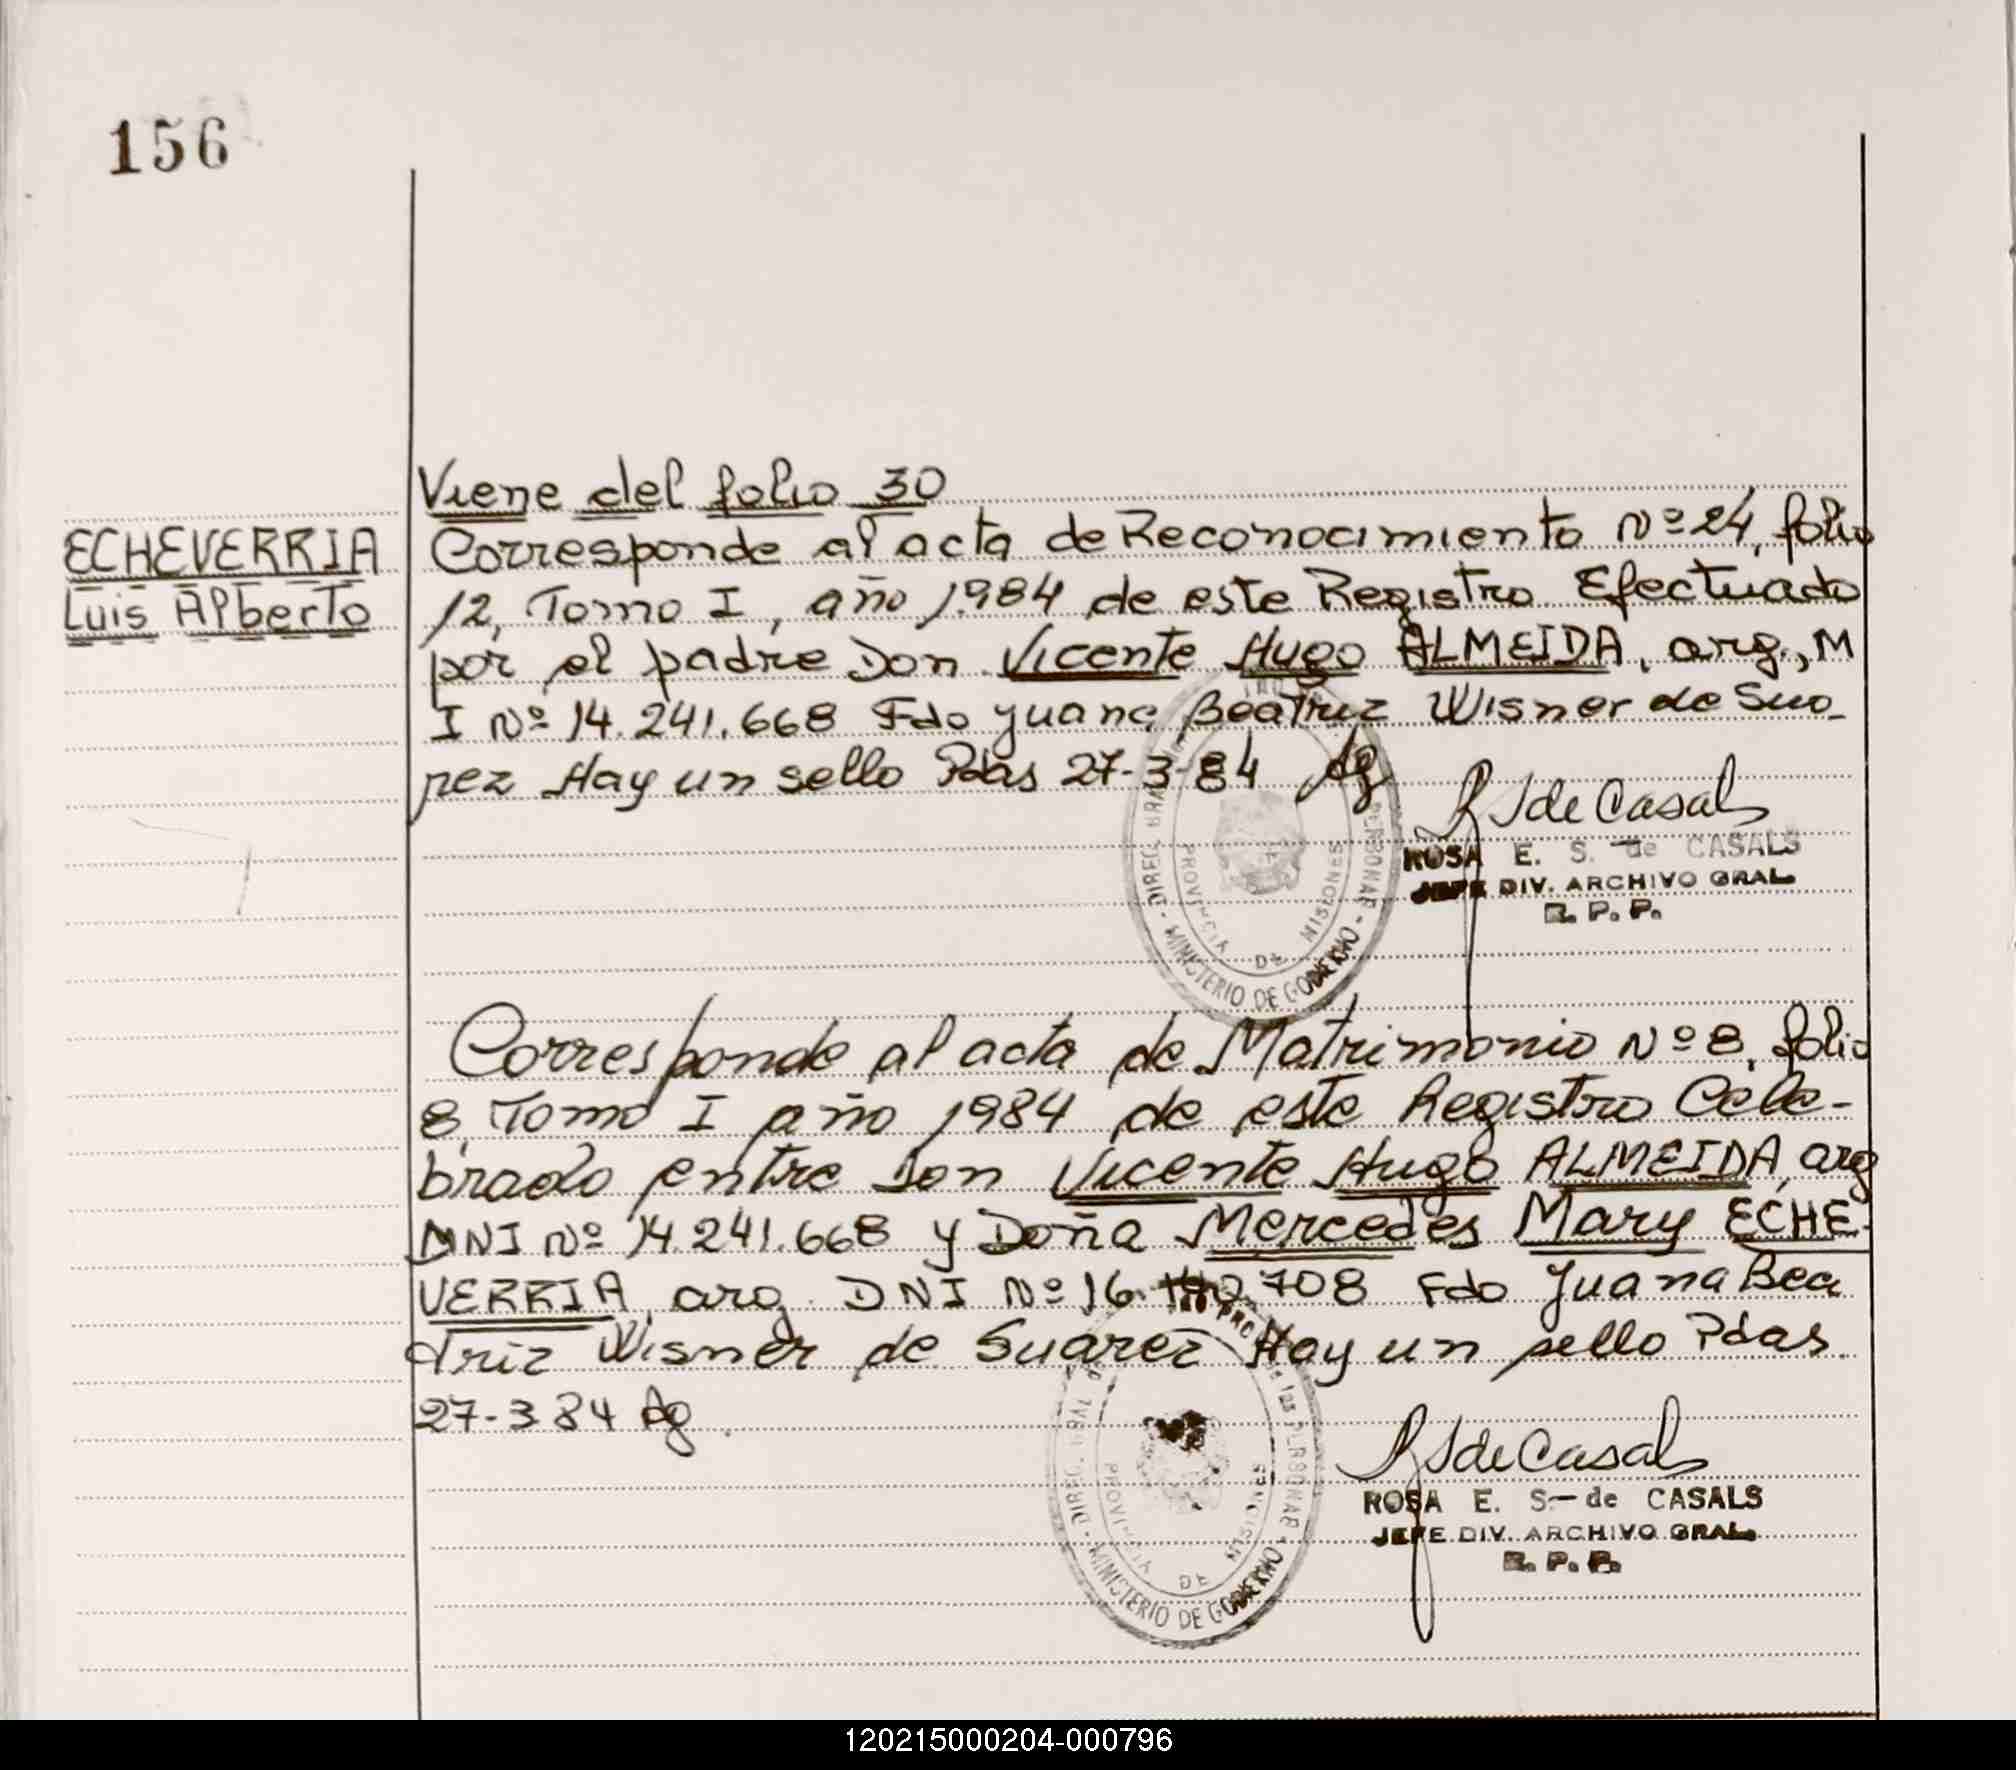 156
ECHEVERRIA
Luis Alberto
Viene del folio 30
Corresponde al acta de Reconocimiento Nº 24, folio
12, Tomo I, año 1984 de este Registro Efectuado
por el padre Don Vicente Hugo ALMEIDA, arg., M
I Nº 14.241.668 Fdo Juana Beatriz Wisner de Sua-
rez Hay un sello Pdas 27-3-84 Ag
R S de Casals
ROSA E. S. de CASALS
JEFE DIV. ARCHIVO GRAL.
R. P. P.
DIREC. GRAL. PERSONAS - MINISTERIO DE GOBIERNO -
PROVINCIA DE MISIONES
Corresponde al acta de Matrimonio Nº 8, folio
8, Tomo I año 1984 de este Registro Cele-
brado entre Don Vicente Hugo ALMEIDA, arg
DNI Nº 14.241.668 y Doña Mercedes Mary ECHE-
VERRIA, arg. DNI Nº 16. 708 Fdo Juana Bea
triz Wisner de Suarez Hay un sello Pdas.
27-3 84 Ag.
R S de Casals
ROSA E. S.- de CASALS
JEFE DIV. ARCHIVO GRAL.
R. P. P.
DIREC. GRAL. de las PERSONAS - MINISTERIO DE GOBIERNO -
PROVINCIA DE MISIONES
120215000204-000796